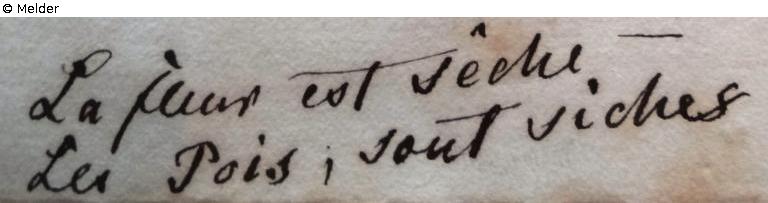 © Melder
La fleur est sêche —
Les Pois, sont siches